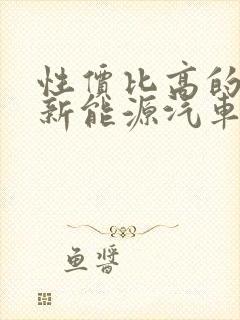 性價比高的
新能源汽車
魚醬